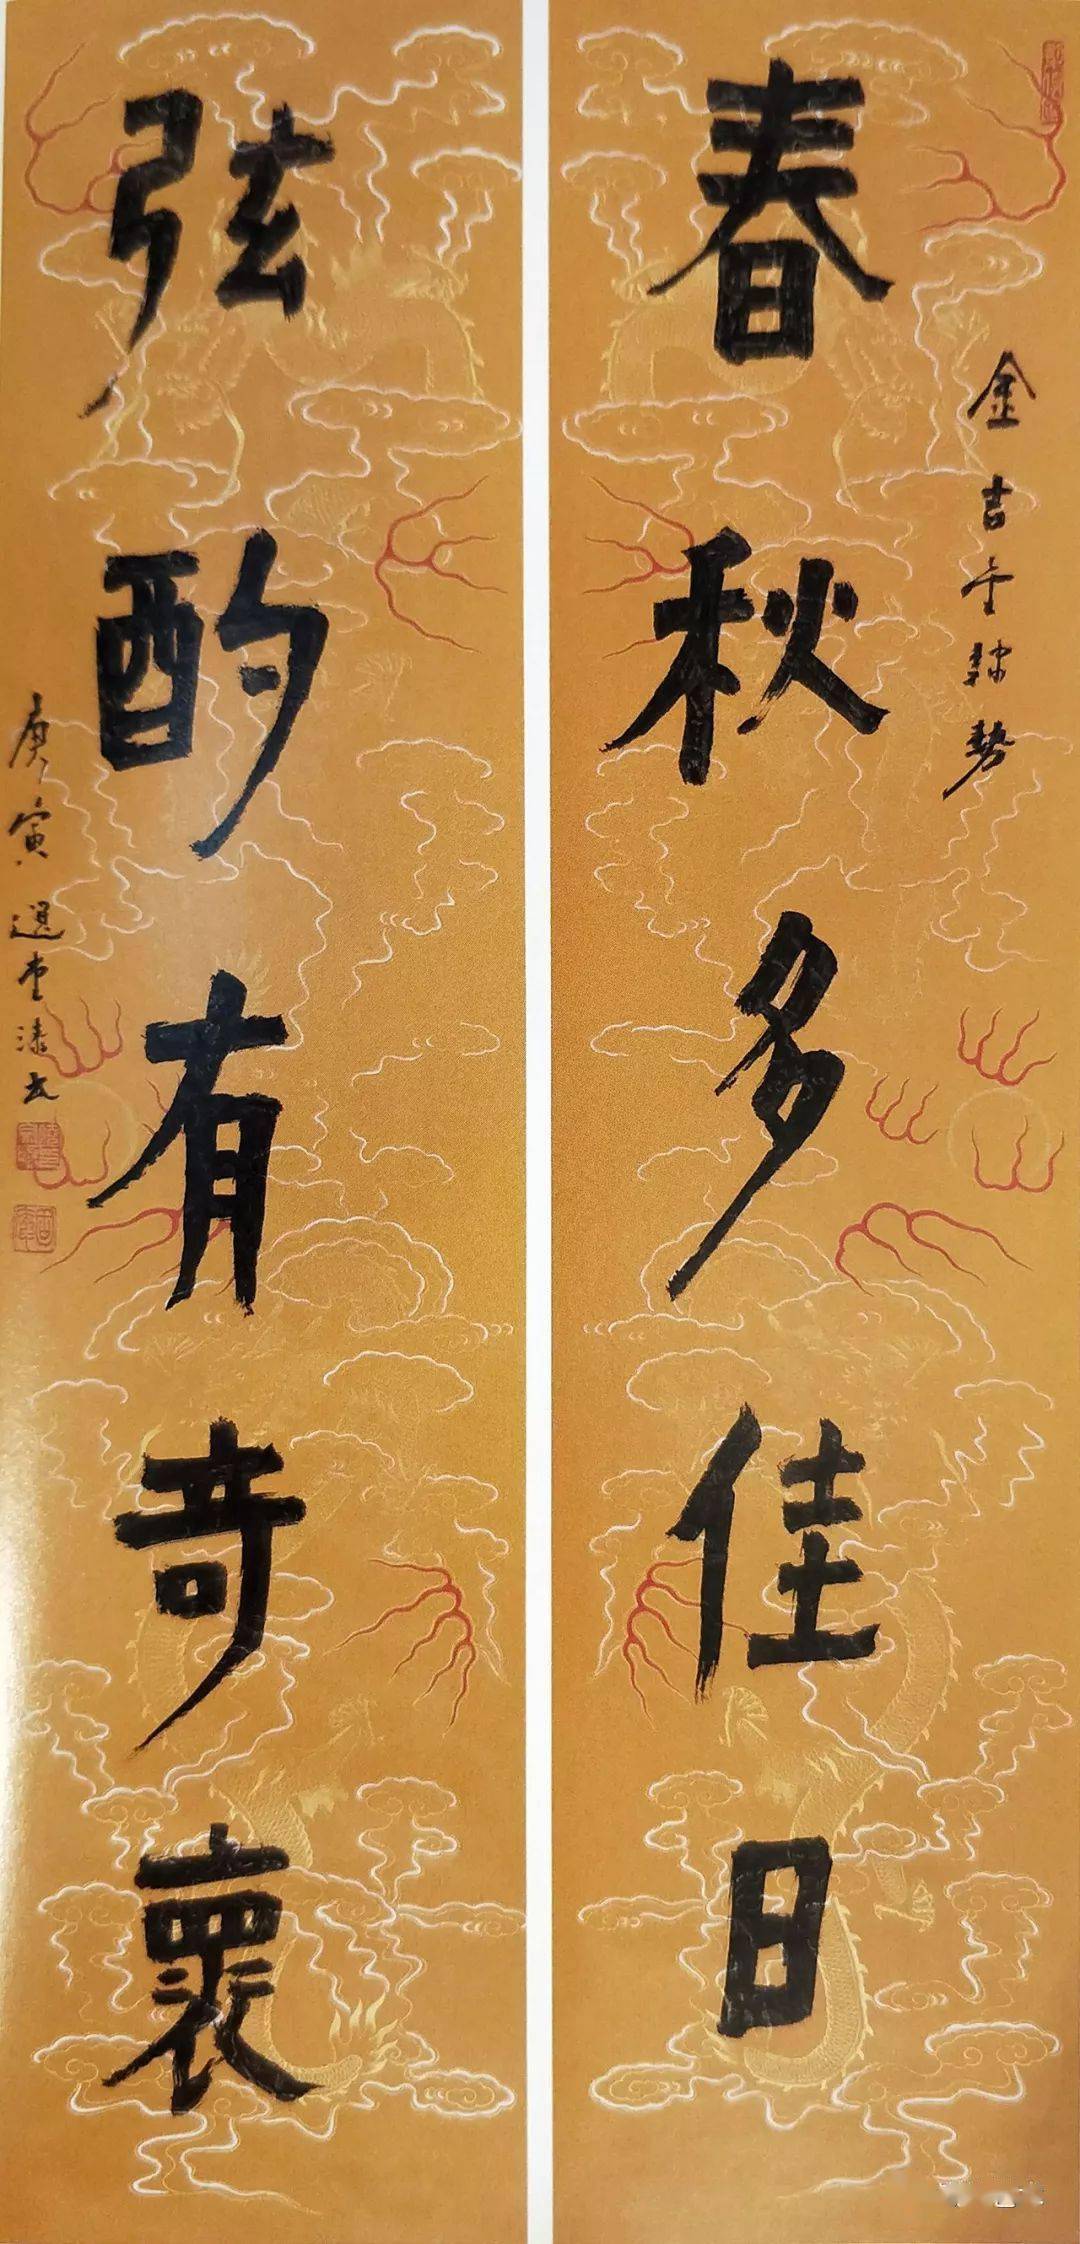 金吉金隸勢
春秋多佳日
弦酌有奇褱
庚寅 選堂漆書